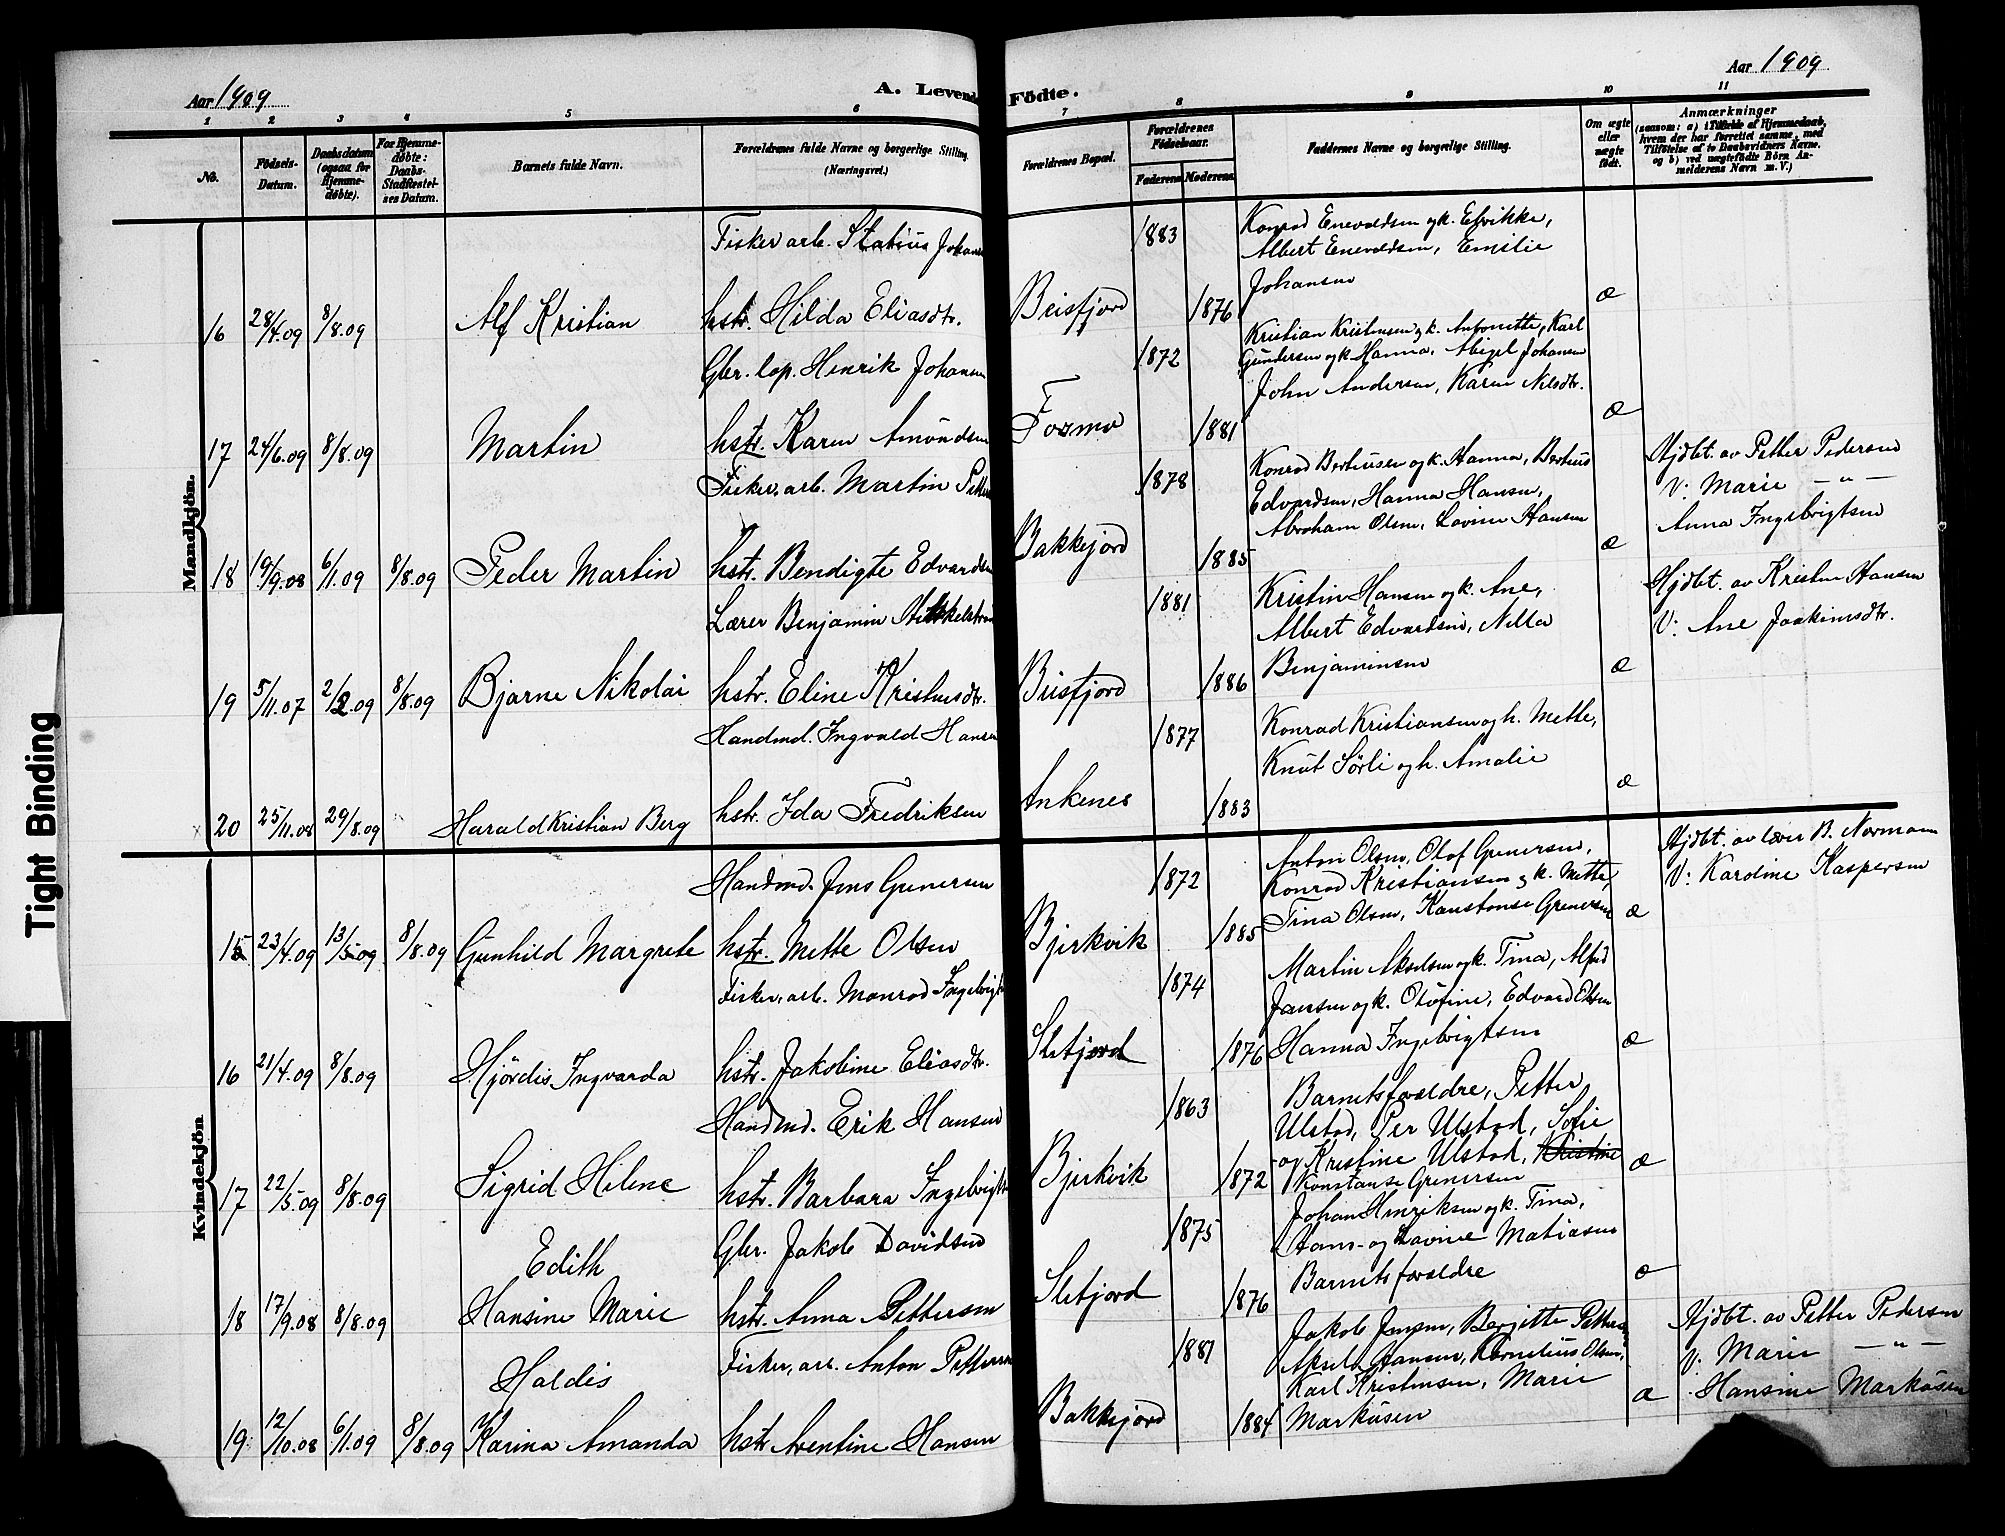 Aar 1909
A. Levende Födte.
Aar 1909
1 2 3 4 5 6 7 8 9 10 11
No.
Födsels-Datum.
Daabsdatum (ogsaa for Hjemme-døbte).
For Hjemme-døbte: Daabs-Stadfæstelses Datum.
Barnets fulde Navn.
Forældrenes fulde Navne og borgerlige Stilling. (Næringsvei.)
Forældrenes Bopæl.
Forældrenes Födselsaar.
Faderens Moderens
Faddernes Navne og borgerlige Stilling.
Om ægte eller uægte födt.
Anmærkninger
(saasom: a) i Tilfælde af Hjemmedaab, hvem der har forrettet samme, med Tilföielse af to Daabsvidners Navne. og b) ved uægtefödte Börn Anmelderens Navn m. V.)
Mandkjön.
Fisker arb. Statius Johans
1883
Konrad Enevoldsen og k. Esvikke,
Albert Enevoldsen, Emilie
Johansen
16 28/4.09 8/8.09 Alf Kristian hstr. Hilda Eliasdtr. Beisfjord 1876 æ
Gbr. lap. Henrik Johansen
1872
Kristian Kristensen og k. Antonette, Karl
Gundersen og k. Hanna, Abigel Johansen
John Andersen, Karen Nilsdtr.
17 24/6.09 8/8.09 Martin hstr. Karen Amundsen Fozmo 1881 æ
Fisker, arb. Martin Petters
1878
Konrad Berthusen og k. Hanna, Berthus
Edvardsen, Hanna Hansen,
Abraham Olsen, Lovise Hansen
Hjdbt. av Petter Pedersen
V: Marie — " —
Anna Ingebrigtsen
18 19/9.08 6/1.09 8/8.09 Peder Martin hstr. Bendigte Edvardsen Bakkejord 1885 æ
Lærer Benjamin
1881
Kristin Hansen og k. Ane,
Albert Edvardsen, Nella
Benjaminsen
Hjdbt. av Kristen Hansen
V: Ane Joakimsdtr.
19 5/11.07 2/2.09 8/8.09 Bjarne Nikolai hstr. Eline Kristensdtr. Beisfjord 1886 æ
Handmd. Ingvald Hansen
1877
Konrad Kristiansen og h. Mette,
Knut Sørli og h. Amalie
20 25/11.08 29/8.09 Harald Kristian Berg hstr. Ida Fredriksen Ankenes 1883 æ
Kvindekjön
Handmd. Jens Grenersen
1872
Anton Olsen, Olof Grenersen,
Konrad Kristiansen og k. Mette,
Tina Olsen, Konstanse Grenersen
Hjdbt. av lærer B. Normann
V: Karoline Kaspersen
15 23/4.09 13/5.09 8/8.09 Gunhild Margrete hstr. Mette Olsen Bjerkvik 1885 æ
Fisker, arb. Monrad Ingebrigts
1874
Martin Akselsen og k. Tina, Alfred
Jansen og k. Olufine, Edvard Olsen
Hanna Ingebrigtsen
16 21/4.09 8/8.09 Hjördis Ingvarda hstr. Jakobine Eliasdtr. Sletjord 1876 æ
Handmd. Erik Hansen
1863
Barnets forældre, Petter
Ulstad, Per Ulstad, Sofie
og Kristine Ulstad, Kristine
Konstanse Grenersen
17 22/5.09 8/8.09 Sigrid Helene hstr. Barbara Ingebrigts Bjerkvik 1872 æ
Gbr. Jakob Davidsen
1875
Johan Henriksen og k. Tina,
Hans- og Lovine Matiasen
Barnets forældre
18 17/9.08 8/8.09 Edith Hansine Marie hstr. Anna Pettersen Sletjord 1876 æ
Fisker, arb. Anton Pettersen
1881
Jakob Jensen, Berjette Petters,
Aksel Hansen, Kornelius Olsen,
Karl Kristensen, Marie
Markusen
Hjdbt. av Petter Pedersen
V: Marie — " —
Hansine Markusen
19 12/10.08 6/1.09 8/8.09 Haldis Karina Amanda hstr. Aventine Hansen Bakkejord 1884 æ
Tight Binding